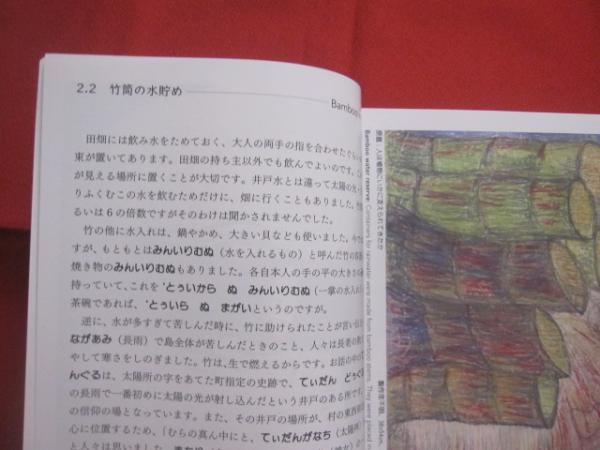 2.2 竹筒の水貯め
Bamboo
田畑には飲み水をためておく、大人の両手の指を合わせたぐらい
束が置いてあります。田畑の持ち主以外でも飲んでよいのです。
が見える場所に置くことが大切です。井戸水とは違って太陽の光
りふくむこの水を飲むためだけに、畑に行くこともありました。
るいは6の倍数ですがそのわけは聞かされませんでした。
竹の他に水入れは、鍋やかめ、大きい貝なども使いました。今で
すが、もともとはみんいりむぬ（水を入れるもの）と呼んだ竹の
焼き物のみんいりむぬもありました。各自本人の手の平の大きさの
持っていて、これを 'とぅいから ぬ みんいりむぬ（一掌の水入れ
茶碗であれば、'とぅいら ぬ まがいというのですが。
逆に、水が多すぎて苦しんだ時に、竹に助けられたことが言い
ながあみ（長雨）で島全体が苦しんだときのこと、人々は長老の教
やして寒さをしのぎました。竹は、生で燃えるからです。お話の中の
んぐるは、太陽所の字をあてた町指定の史跡で、てぃだん どぅく
の長雨で一番初めに太陽の光が射し込んだという井戸のある所です。
の信仰の場となっています。また、その井戸の場所が、村の東西南
心に位置するため、「むらの真ん中にと、てぃだんがなち（太陽
と人々は思いました。
原題 人は植物にいかに支えられてきたか
Bamboo water reserve: Containers for rainwater were made from bamboo stems. They were placed